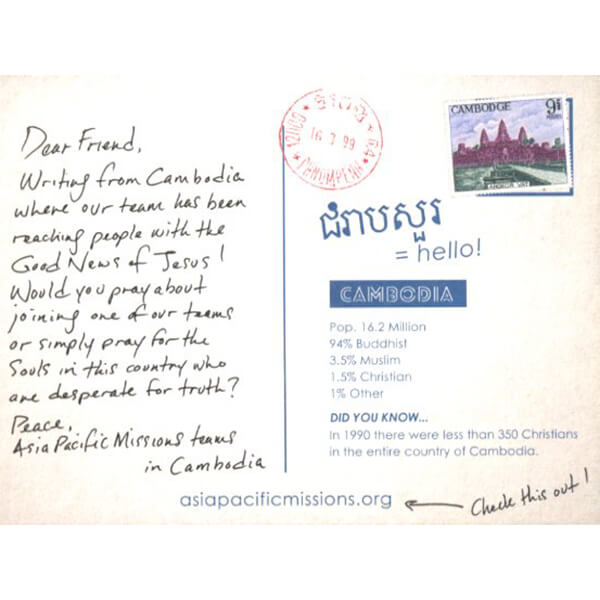 Dear Friend,
Writing from Cambodia
where our team has been
reaching people with the
Good News of Jesus!
Would you pray about
joining one of our teams
or simply pray for the
Souls in this country who
are desperate for truth?
Peace,
Asia Pacific Missions teams
in Cambodia
12000
16 7 99
PHNOMPENH
CAMBODGE
9
ANGKOR VAT
ជំរាបសួរ
= hello!
CAMBODIA
Pop. 16.2 Million
94% Buddhist
3.5% Muslim
1.5% Christian
1% Other
DID YOU KNOW...
In 1990 there were less than 350 Christians
in the entire country of Cambodia.
asiapacificmissions.org
Check this out!